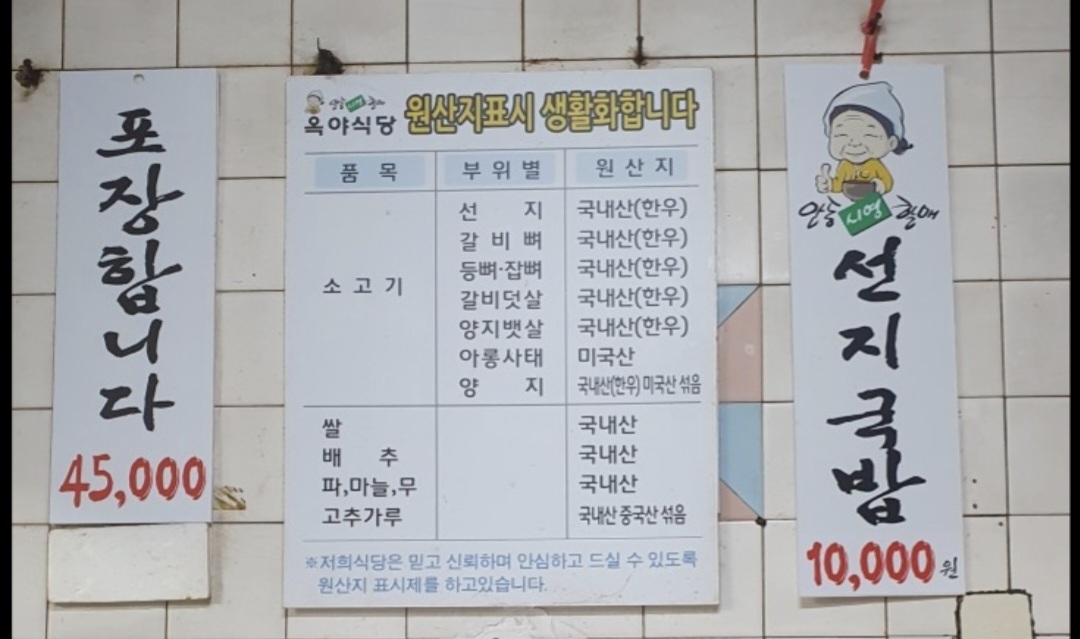 포장합니다
45,000
안동 시영 할매
옥야식당 원산지표시 생활화합니다
품 목 부 위 별 원 산 지
소 고 기
선 지 국내산(한우)
갈 비 뼈 국내산(한우)
등뼈·잡뼈 국내산(한우)
갈비덧살 국내산(한우)
양지뱃살 국내산(한우)
아롱사태 미국산
양 지 국내산(한우) 미국산 섞음
쌀 국내산
배 추 국내산
파,마늘,무 국내산
고추가루 국내산 중국산 섞음
※저희식당은 믿고 신뢰하며 안심하고 드실 수 있도록
원산지 표시제를 하고있습니다.
안동 시영 할매
선지국밥
10,000원